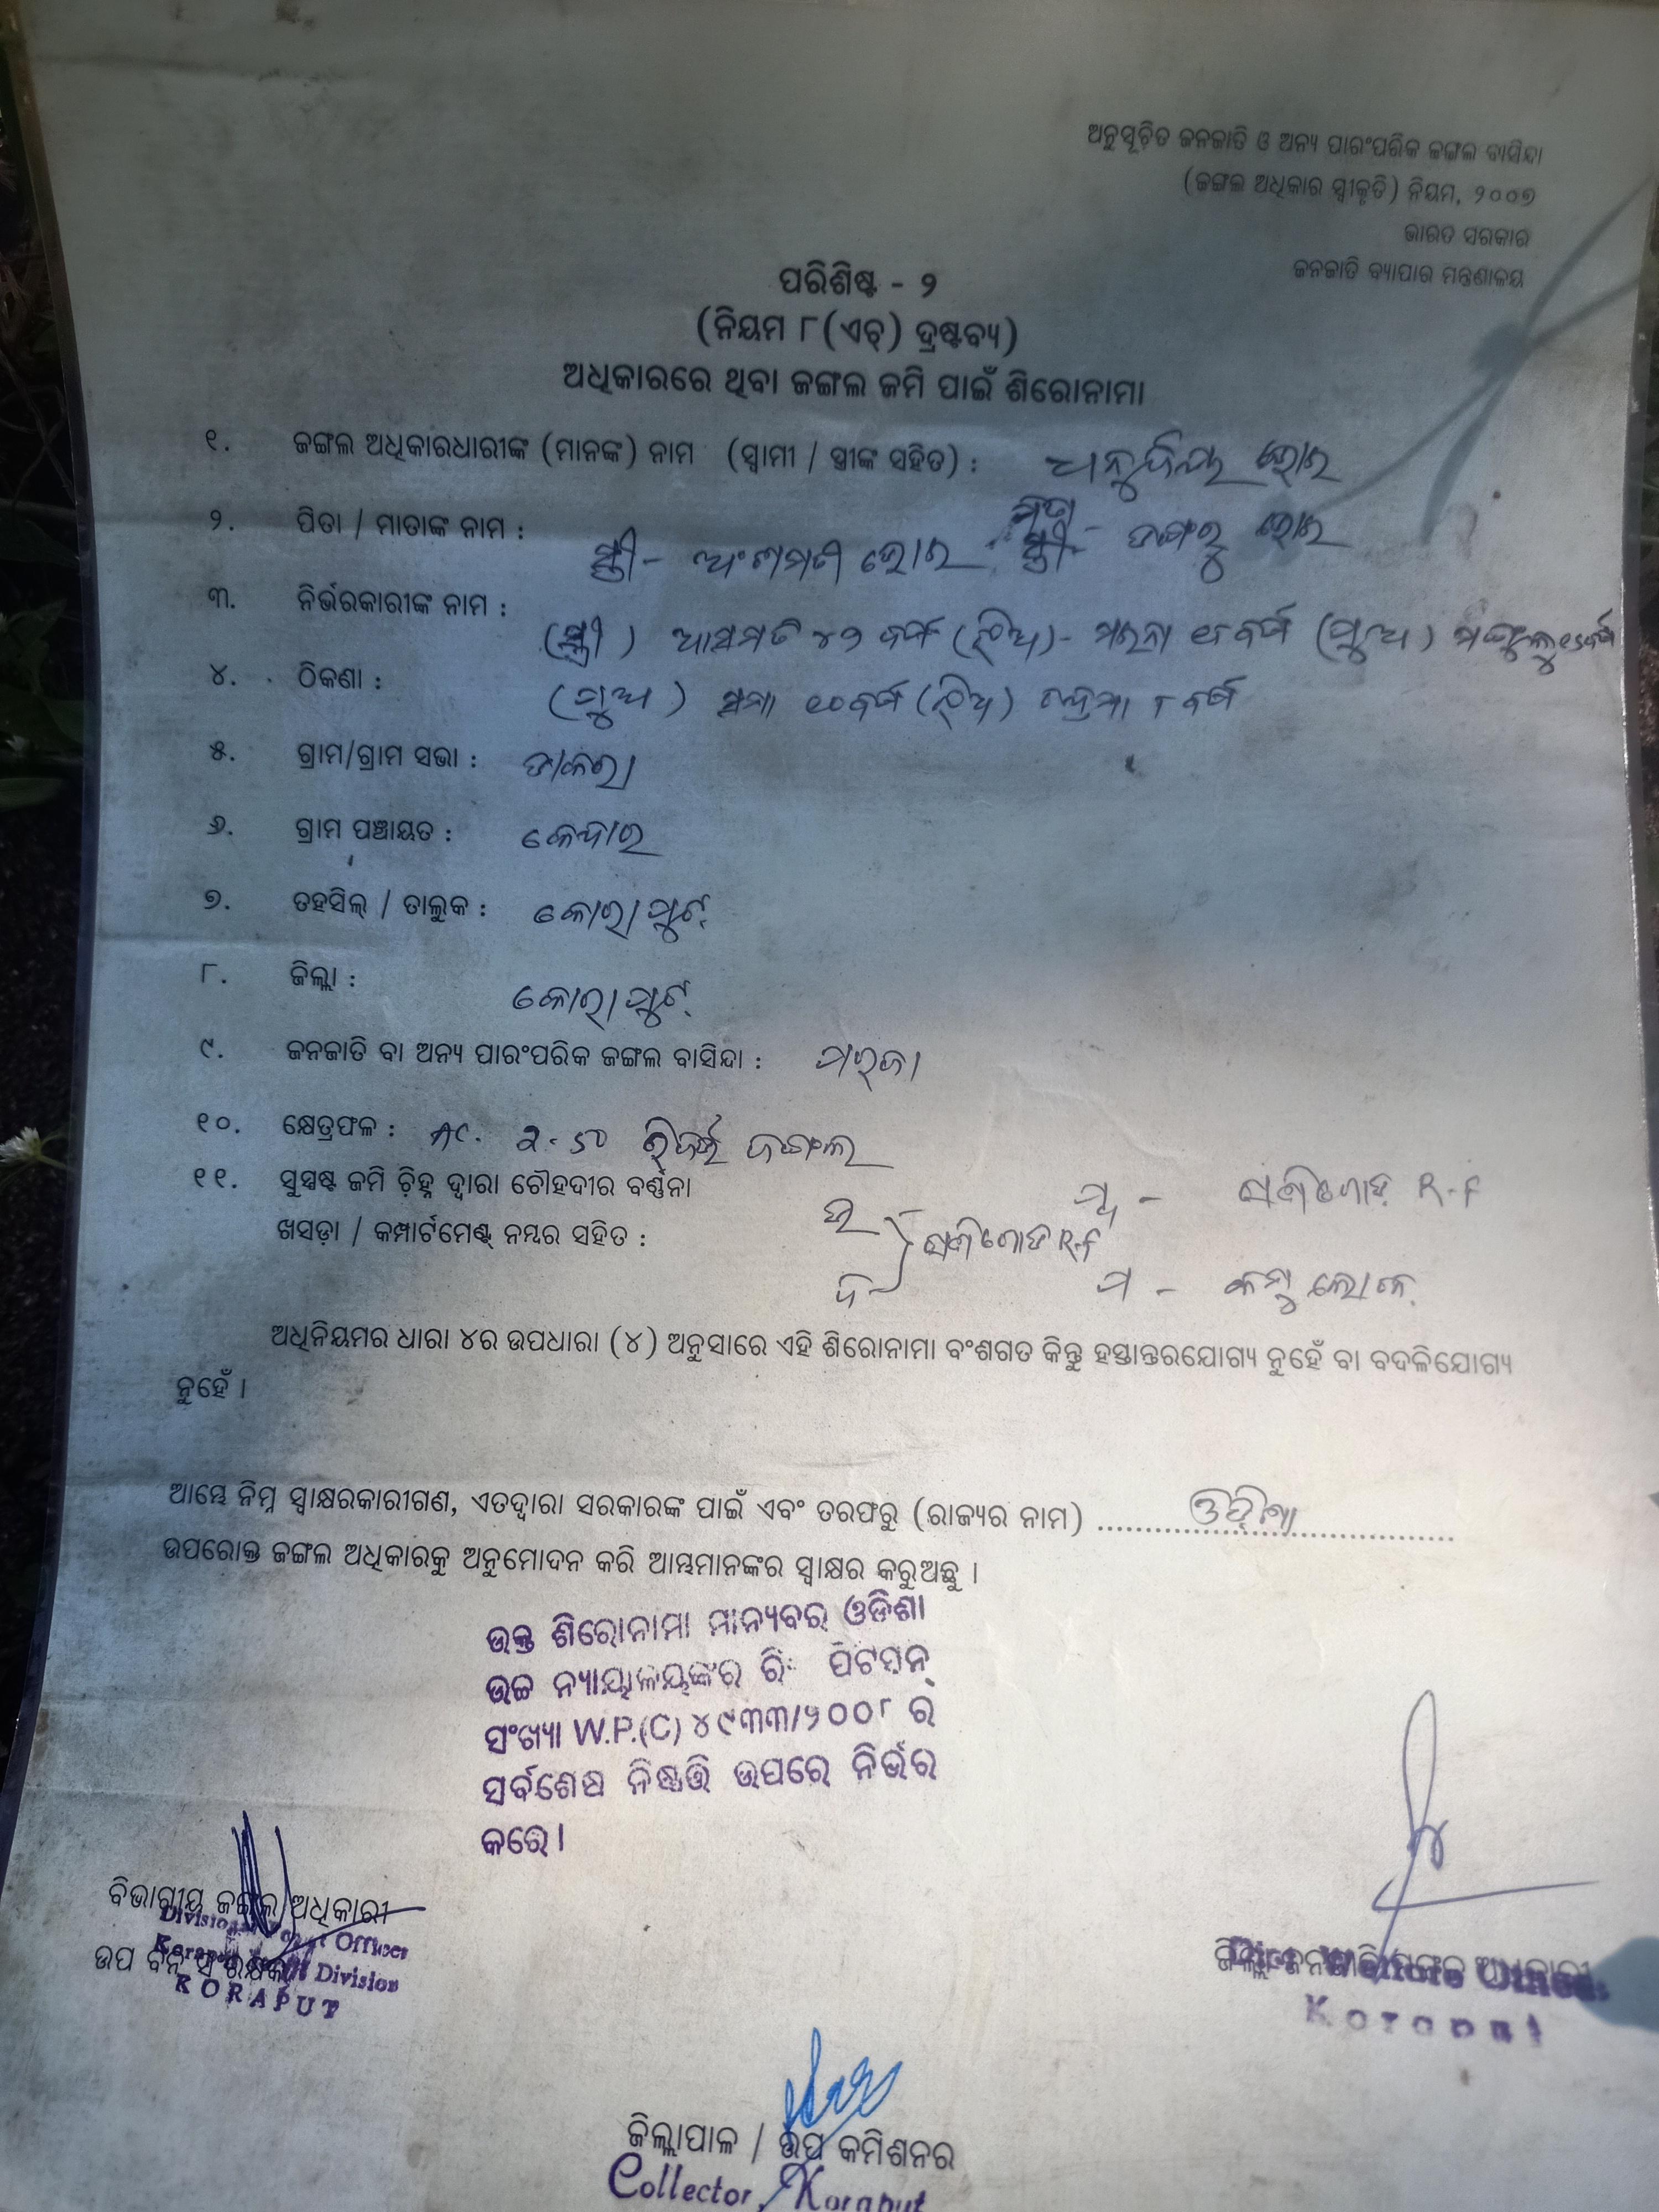 ଅନୁସୂଚିତ ଜନଜାତି ଓ ଅନ୍ୟ ପାରଂପରିକ ଜଙ୍ଗଲ ବାସିନ୍ଦା
(ଜଙ୍ଗଲ ଅଧିକାର ସ୍ୱୀକୃତି) ନିୟମ, ୨୦୦୭
ଭାରତ ସରକାର
ଜନଜାତି ବ୍ୟାପାର ମନ୍ତ୍ରଣାଳୟ
ପରିଶିଷ୍ଟ - ୨
(ନିୟମ ୮(ଏଚ୍) ଦ୍ରଷ୍ଟବ୍ୟ)
ଅଧିକାରରେ ଥିବା ଜଙ୍ଗଲ ଜମି ପାଇଁ ଶିରୋନାମା
୧. ଜଙ୍ଗଲ ଅଧିକାରଧାରୀଙ୍କ (ମାନଙ୍କ) ନାମ (ସ୍ୱାମୀ / ସ୍ତ୍ରୀଙ୍କ ସହିତ) :
୨. ପିତା / ମାତାଙ୍କ ନାମ : ସ୍ତ୍ରୀ -
୩. ନିର୍ଭରକାରୀଙ୍କ ନାମ : (ସ୍ତ୍ରୀ) ୪୨ ବର୍ଷ (ଝିଅ) - (ପୁଅ)
୪. ଠିକଣା : (ପୁଅ) ୧୦ ବର୍ଷ (ଝିଅ) ୮ ବର୍ଷ
୫. ଗ୍ରାମ/ଗ୍ରାମ ସଭା :
୬. ଗ୍ରାମ ପଞ୍ଚାୟତ : କେନ୍ଦାର
୭. ତହସିଲ୍ / ତାଲୁକ : କୋରାପୁଟ୍
୮. ଜିଲ୍ଲା : କୋରାପୁଟ୍
୯. ଜନଜାତି ବା ଅନ୍ୟ ପାରଂପରିକ ଜଙ୍ଗଲ ବାସିନ୍ଦା : ପରଜା
୧୦. କ୍ଷେତ୍ରଫଳ : Ac. 2.50 ରିଜର୍ଭ ଜଙ୍ଗଲ
୧୧. ସୁସ୍ପଷ୍ଟ ଜମି ଚିହ୍ନ ଦ୍ୱାରା ଚୌହଦୀର ବର୍ଣ୍ଣନା
ଖସଡ଼ା / କମ୍ପାର୍ଟମେଣ୍ଟ୍ ନମ୍ବର ସହିତ :
ଉ - R.F ପୂ - R.F
ଦ - ପ -
ଅଧିନିୟମର ଧାରା ୪ର ଉପଧାରା (୪) ଅନୁସାରେ ଏହି ଶିରୋନାମା ବଂଶଗତ କିନ୍ତୁ ହସ୍ତାନ୍ତରଯୋଗ୍ୟ ନୁହେଁ ବା ବଦଳିଯୋଗ୍ୟ
ନୁହେଁ ।
ଆମ୍ଭେ ନିମ୍ନ ସ୍ୱାକ୍ଷରକାରୀଗଣ, ଏତଦ୍ୱାରା ସରକାରଙ୍କ ପାଇଁ ଏବଂ ତରଫରୁ (ରାଜ୍ୟର ନାମ) ........ଓଡ଼ିଶା........
ଉପରୋକ୍ତ ଜଙ୍ଗଲ ଅଧିକାରକୁ ଅନୁମୋଦନ କରି ଆମ୍ଭମାନଙ୍କର ସ୍ୱାକ୍ଷର କରୁଅଛୁ ।
ଉକ୍ତ ଶିରୋନାମା ମାନ୍ୟବର ଓଡିଶା
ଉଚ୍ଚ ନ୍ୟାୟାଳୟଙ୍କର ରିଃ ପିଟସନ୍
ସଂଖ୍ୟା W.P.(C) ୪୯୩୩/୨୦୦୮ ର
ସର୍ବଶେଷ ନିଷ୍ପତ୍ତି ଉପରେ ନିର୍ଭର
କରେ ।
ବିଭାଗୀୟ ଜଙ୍ଗଲ ଅଧିକାରୀ
Divisional Forest Officer
ଉପ ବନ ସଂରକ୍ଷକ
Koraput Division
KORAPUT
ଜିଲ୍ଲା ଜନଜାତି ମଙ୍ଗଳ ଅଧିକାରୀ
Dist. Welfare Officer
Koraput
ଜିଲ୍ଲାପାଳ / ଉପ କମିଶନର
Collector, Koraput